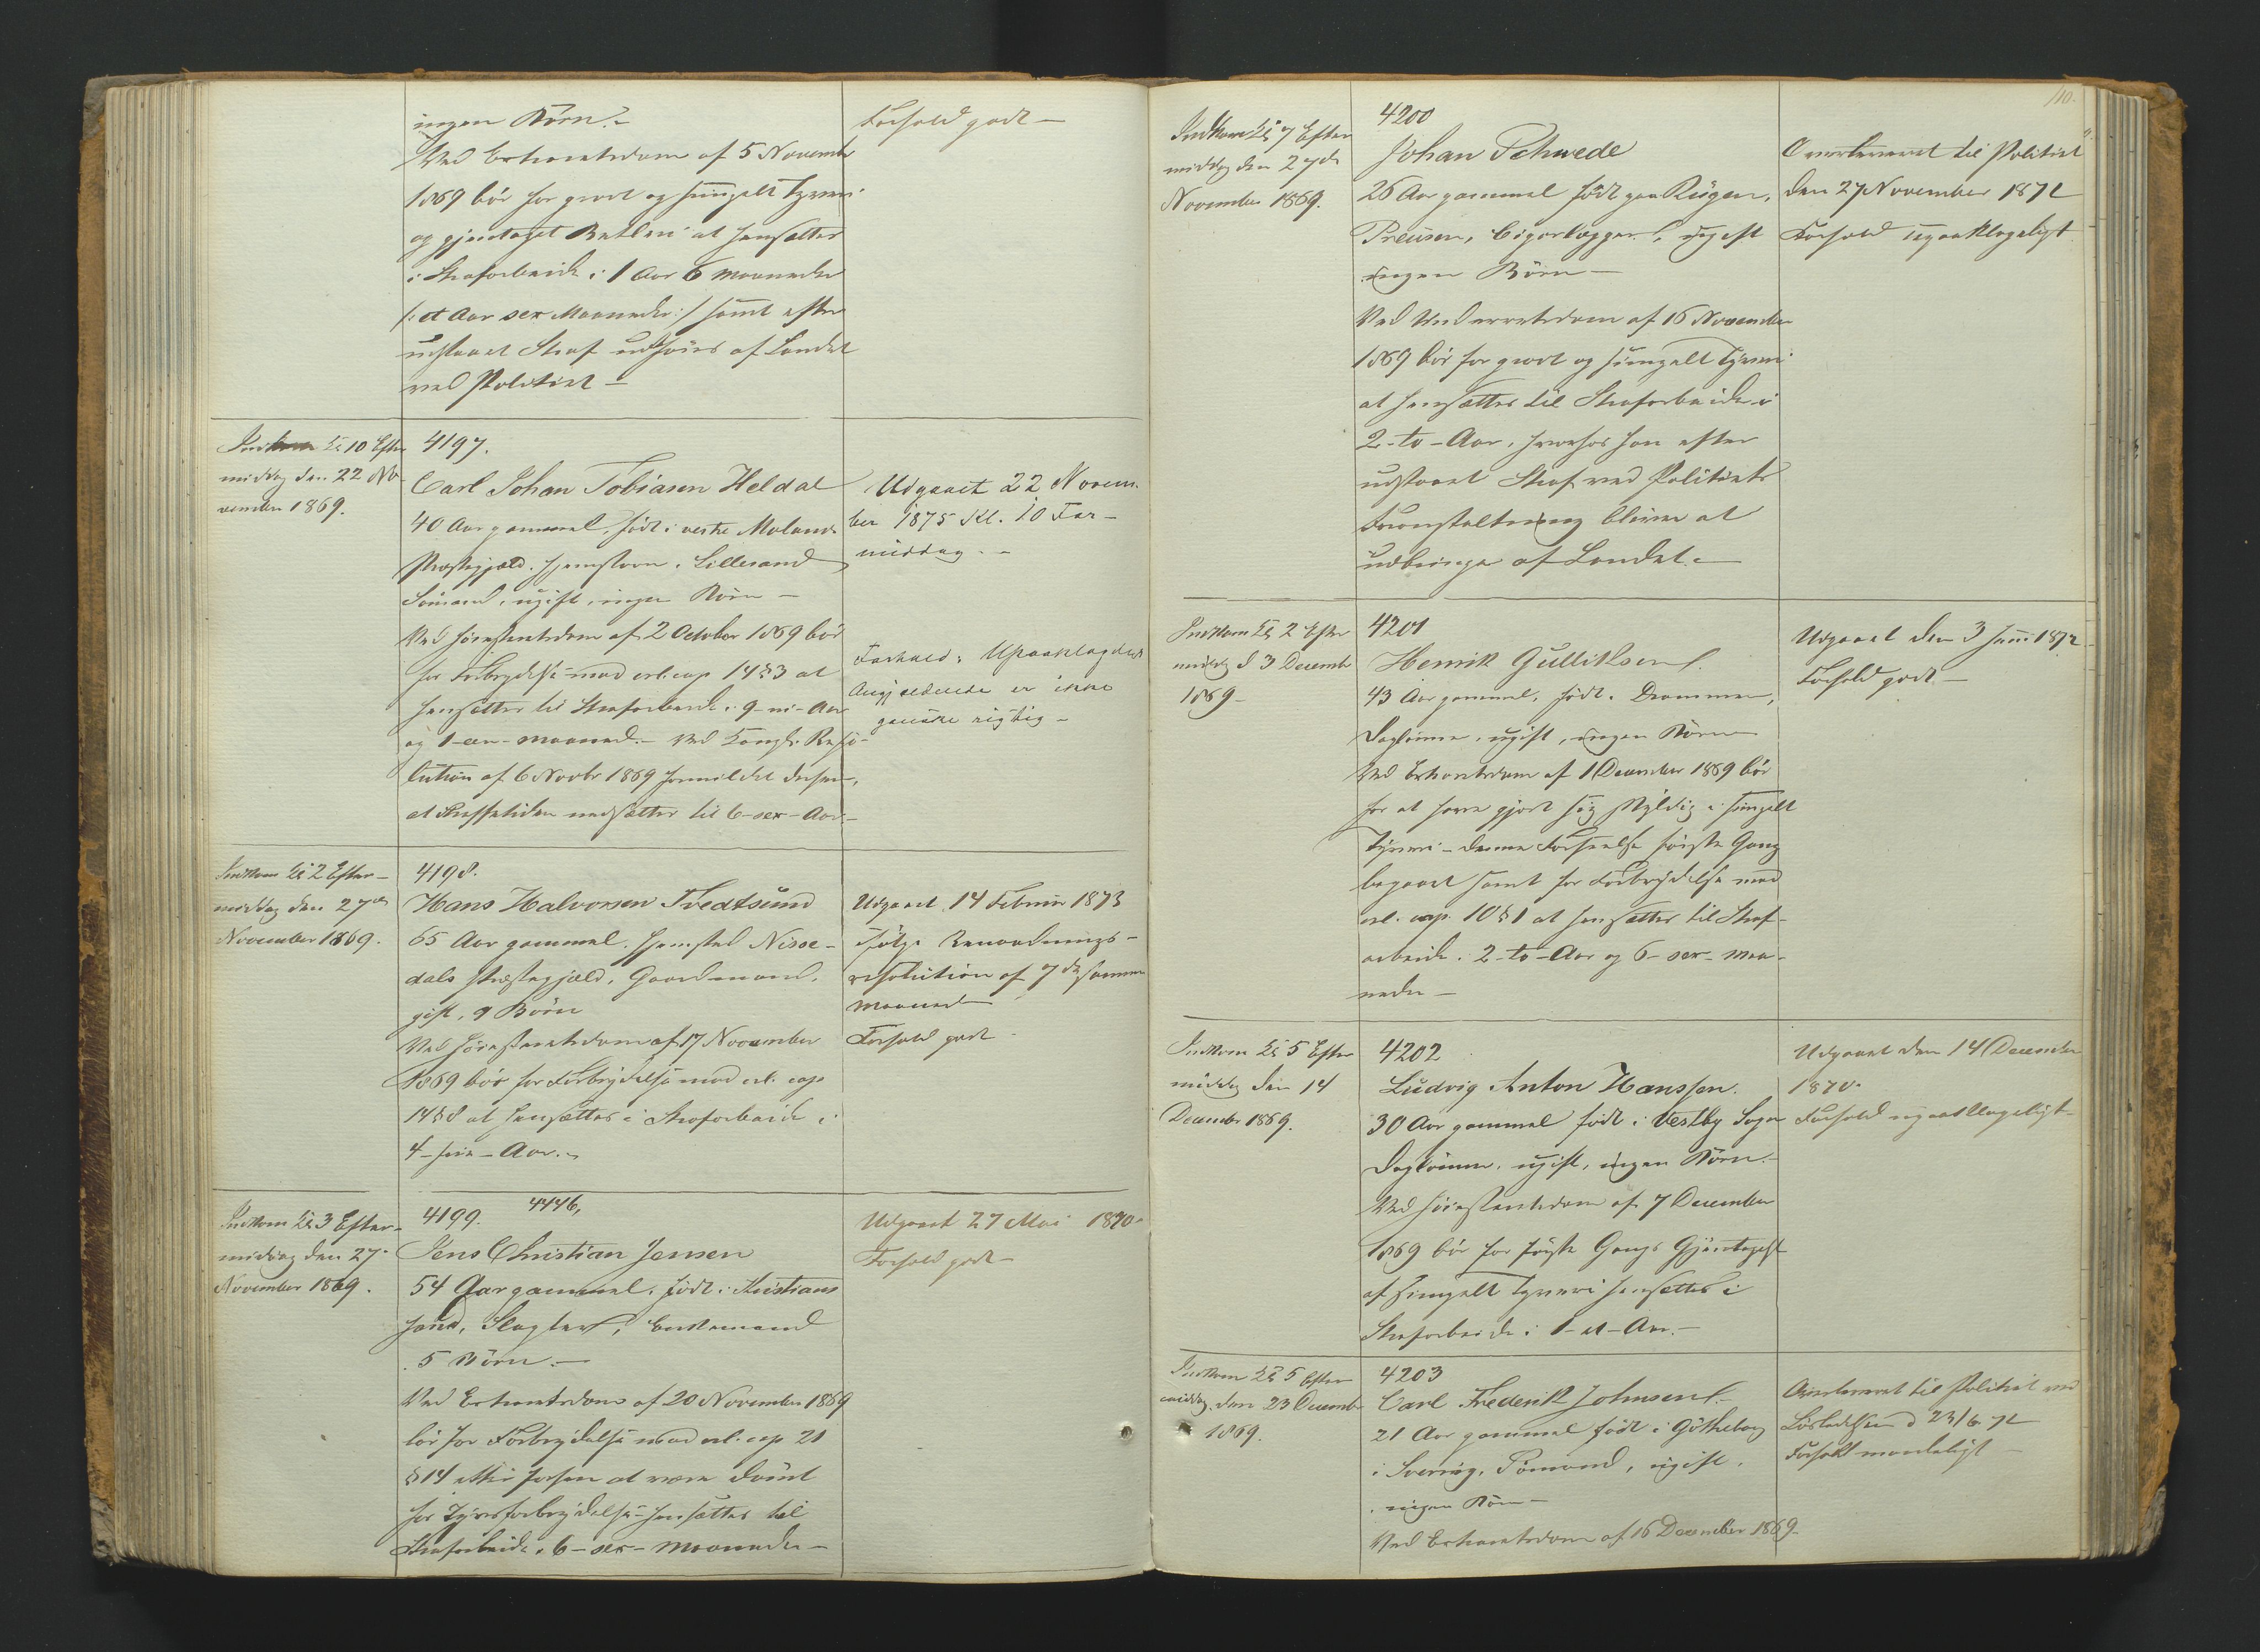 ingen Börn.-
Ved Extraretsdom af 5 Novembr
1869 bör for grovt og simpelt Tyveri
og gjentaget Betleri at hensættes
i Strafarbeide i 1 Aar 6 Maaneder
/: et Aar sex Maaneder :/ samt efter
udstaaet Straf udföres af Landet
ved Politiet -
Forhold godt -
Indkom Kl 10 Efter
middag den 22 No-
vember 1869.
4197.
Carl Johan Tobiasen Heldal
40 Aar gammel, född i vestre Molands
Præstegjæld, Hjemstavn, Lillesand
Sömand, ugift, ingen Börn -
Ved Höiesteretsdom af 2 October 1869 bör
for Forbrydelse mod crl. cap 14 § 3 at
hensættes til Strafarbeide i 9 - ni - Aar
og 1 - een - Maaned. - Ved Kongl. Reso-
lution af 6 Novbr 1869 formildet derhen,
at Straffetiden nedsættes til 6 - sex - Aar. -
Udgaaet 22 Novem-
ber 1875 Kl. 10 For-
middag. -
Forhold: Upaaklageligt
Angjældende er ikke
ganske rigtig -
Indkom Kl 2 Efter-
middag den 27de
November 1869.
4198.
Hans Halvorsen Tvedtsund
65 Aar gammel, Hjemsted Nisse-
dals Præstegjæld, Gaardmand,
gift, 9 Börn
Ved Höiesteretsdom af 17 November
1869 bör for Forbrydelse mod crl. cap
14 § 8 at hensættes i Strafarbeide i
4 - fire - Aar. -
Udgaaet 14 Februar 1873
ifölge Benaadnings-
resolution af 7de samme
Maaned
Forhold godt -
Indkom Kl 3 Efter-
middag den 27.
November 1869.
4199. 4446,
Jens Christian Jensen
54 Aar gammel, född i Kristians
sand, Slagter, Enkemand
5 Börn. -
Ved Extraretsdom af 20 November 1869
bör for Forbrydelse mod crl. cap 21
§ 14 efter forhen at være dömt
for Tyvsforbrydelse hensættes til
Strafarbeide i 6 - sex - Maaneder -
Udgaaet 27 Mai 1870.
Forhold godt -
110.
Indkom Kl 7 Efter
middag den 27de
November 1869.
4200
Johan Schwede
26 Aar gammel född paa Rügen,
Preusen, Cigarlægger, ugift
ingen Börn -
Ved Underretsdom af 16 November
1869 bör for grovt og simpelt Tyveri
at hensættes til Strafarbeide i
2 - to - Aar, hvorhos han efter
udstaaet Straf ved Politiets
Foranstaltning bliver at
udbringe af Landet. -
Overleveret til Politiet
den 27 November 1871
Forhold upaaklageligt
Indkom Kl 2 Efter
middag d 3 Decembr
1869 -
4201
Henrik Gulliksen
43 Aar gammel, född i Drammen,
Daglönner, ugift, ingen Börn
Ved Extraretsdom af 1 December 1869 bör
for at have gjort sig skyldig i simpelt
Tyveri - denne Forseelse förste Gang
begaaet samt for Forbrydelse mod
crl. cap. 10 § 1 at hensættes til Straf-
arbeide i 2 - to - Aar og 6 - sex - Maa-
neder -
Udgaaet den 3 Juni 1872
Forhold godt -
Indkom Kl 5 Efter
middag den 14
Decembr 1869.
4202
Ludvig Anton Hanssen.
30 Aar gammel född i Vestby Sogn
Daglönner, ugift, ingen Börn. -
Ved Höiesteretsdom af 7 December
1869 bör for förste Gangs Gjentagelse
af simpelt Tyveri hensættes i
Strafarbeide i 1 - et - Aar. -
Udgaaet den 14 December
1870.
Forhold upaaklageligt -
Indkom Kl 5 Efter
middag den 23 Decembr
1869.
4203
Carl Frederik Johnsen
21 Aar gammel född i Götheborg
i Sverrig, Sömand, ugift,
ingen Börn -
Ved Extraretsdom af 16 December 1869.
Overleveret til Politiet ved
Lösladelsen d 23/6 71
Forhold maadeligt -